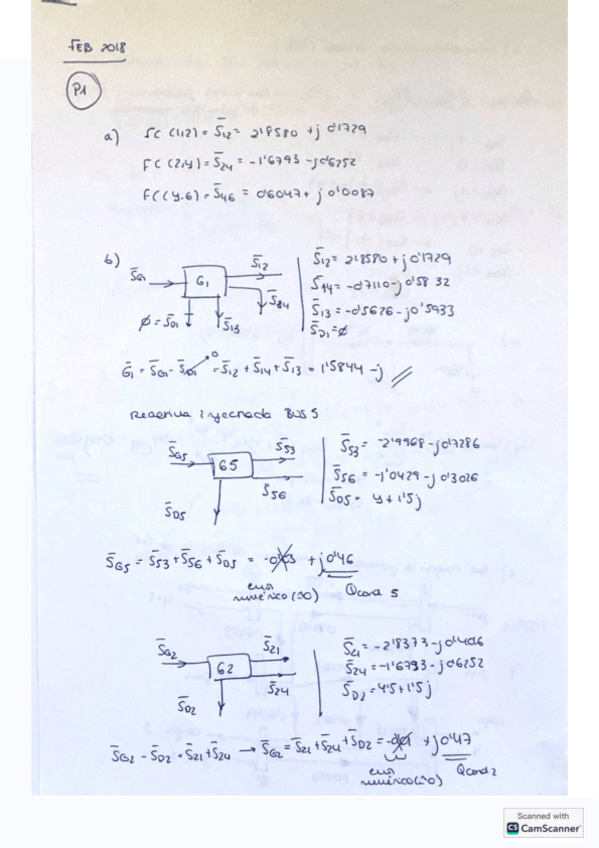 FEB 2018
P1
a) FC (1,2) = S̄12 = 2'8580 + j 0'1729
FC (2,4) = S̄24 = -1'6793 - j0'6252
FC (4,6) = S̄46 = 0'6047 + j 0'0087
b)
S̄G1
G1
S̄12
S̄13
∅ = S̄D1
S̄12 = 2'8580 + j0'1729
S̄14 = -0'7110 - j0'5832
S̄13 = -0'5626 - j0'5933
S̄D1 = ∅
Ḡ1 = S̄G1 - S̄D1 = S̄12 + S̄14 + S̄13 = 1'5844 - j
0
Reactiva inyectada BUS 5
S̄G5
G5
S̄53
S̄56
S̄D5
S̄53 = -2'9968 - j0'7286
S̄56 = -1'0429 - j0'3026
S̄D5 = 4 + 1'5j
S̄G5 = S̄53 + S̄56 + S̄D5 = + j0'46
error
numérico (≈0)
Qcond 5
S̄G2
G2
S̄21
S̄24
S̄D2
S̄21 = -2'8373 - j0'406
S̄24 = -1'6793 - j0'6252
S̄D2 = 4'5 + 1'5j
S̄G2 - S̄D2 = S̄21 + S̄24 → S̄G2 = S̄21 + S̄24 + S̄D2 = + j0'47
error
numérico (≈0)
Qcond 2
Scanned with
CS CamScanner